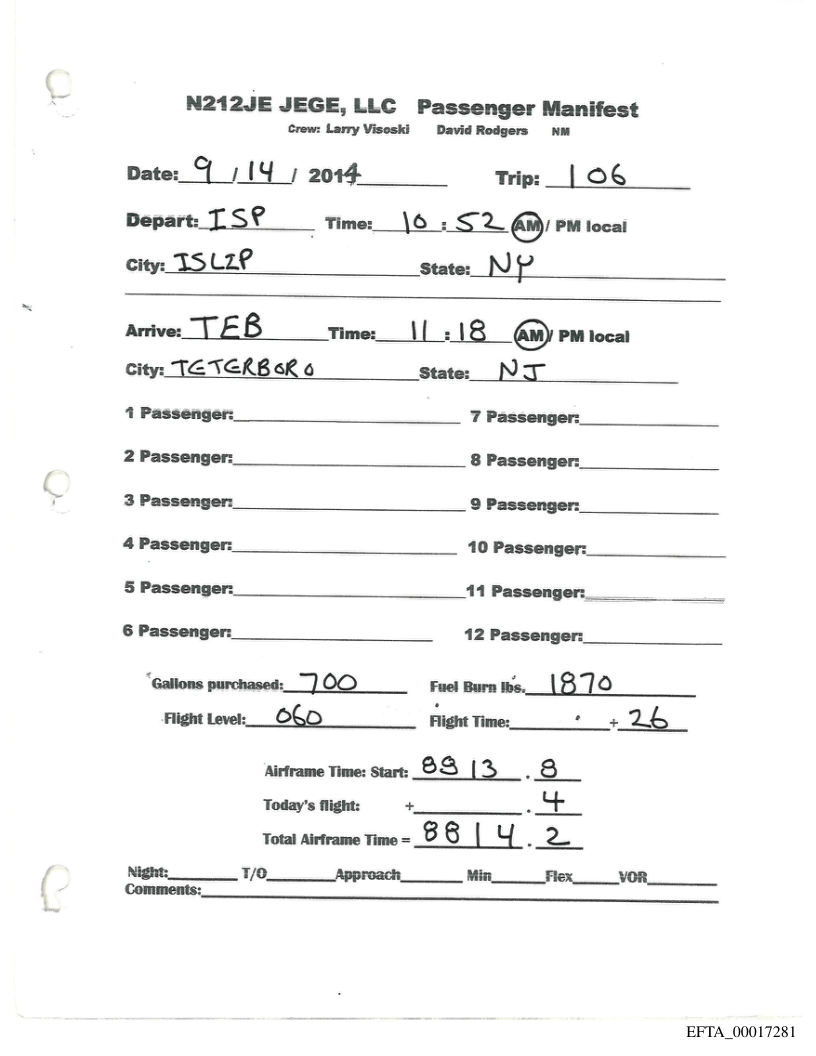 N212JE JEGE, LLC Passenger Manifest
Crew: Larry Visoski David Rodgers NM
Date: 9 / 14 / 2014 Trip: 106
Depart: ISP Time: 10 : 52 AM / PM local
City: ISLIP State: NY
Arrive: TEB Time: 11 : 18 AM / PM local
City: TETERBORO State: NJ
1 Passenger: 7 Passenger:
2 Passenger: 8 Passenger:
3 Passenger: 9 Passenger:
4 Passenger: 10 Passenger:
5 Passenger: 11 Passenger:
6 Passenger: 12 Passenger:
Gallons purchased: 700 Fuel Burn lbs. 1870
Flight Level: 060 Flight Time: + 26
Airframe Time: Start: 8813 . 8
Today's flight: + . 4
Total Airframe Time = 8814 . 2
Night: T/O Approach Min Flex VOR
Comments:
EFTA_00017281